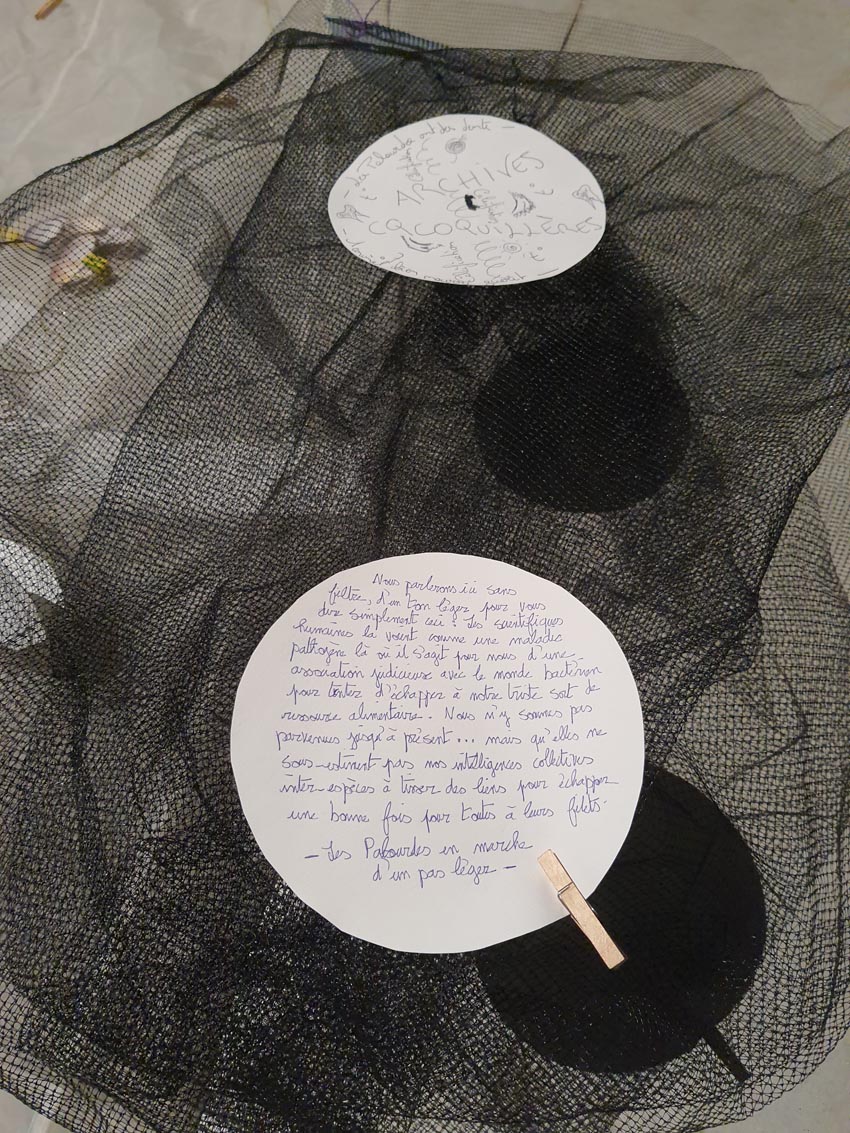 Les Palourdes ont des dents —
ARCHIVES
COCOQUILLÈRES
Nous parlerons ici sans
filtre, d'un ton léger pour vous
dire simplement ceci : les scientifiques
humaines la voient comme une maladie
pathogène là où il s'agit pour nous d'une
association judicieuse avec le monde bactérien
pour tenter d'échapper à notre triste sort de
ressource alimentaire. Nous n'y sommes pas
parvenues jusqu'à présent... mais qu'elles ne
sous-estiment pas nos intelligences collectives
inter-espèces à tisser des liens pour échapper
une bonne fois pour toutes à leurs filets.
— Les Palourdes en marche
d'un pas léger —